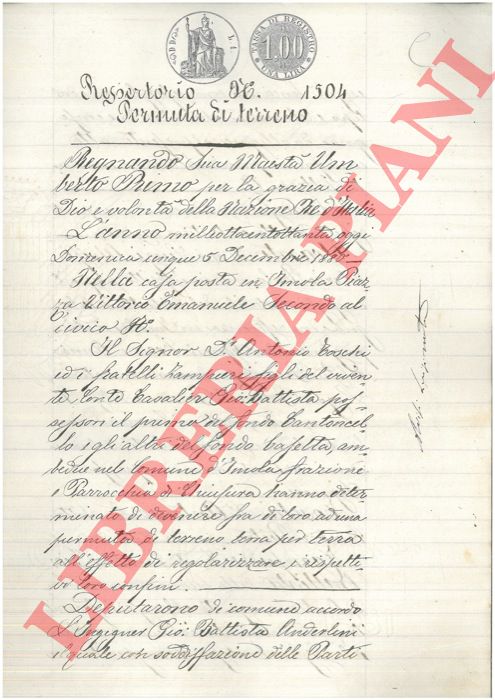 TASSA DI REGISTRO
1.00
UNA LIRA
Repertorio N. 1504
Permuta di terreno
Regnando Sua Maestà Um
berto Primo per la grazia di
Dio e volontà della Nazione Re d'Italia
L'anno milleottocentottanta oggi
Domenica cinque 5 Decembre 1880
Nella casa posta in Imola Piaz
za Vittorio Emanuele Secondo al
civico N.
Il Signor Dr. Antonio Toschi
ed i fratelli Zampieri figli del vivente
Conte Cavalier Gio: Battista pos
sessori il primo del fondo Cantoncel
lo e gli altri del fondo Basetta, am
bedue nel comune d'Imola frazione
e Parrocchia di Chiusura hanno deter
minato di divenire fra di loro ad una
permuta di terreno terra per terra
all'effetto di regolarizzare i rispetti
vi loro confini.
Deputarono di comune accordo
l'Ingegner Gio: Battista Anderlini
il quale con soddisfazione delle Parti
LIBRERIA PIANI